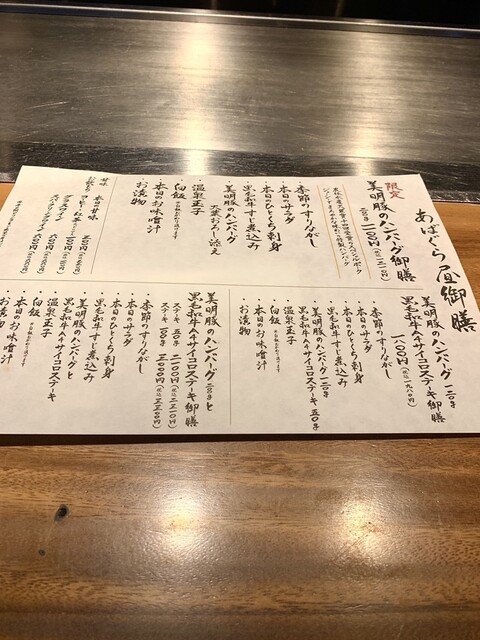 あばぐら昼御膳
限定
美明豚のハンバーグ御膳
二〇〇g 二一〇〇円(税込二三一〇円)
・季節のすりながし
・本日のサラダ
・本日のひとくち刺身
・黒毛和牛すじ煮込み
・美明豚のハンバーグ
天葉おろし添え
・温泉玉子
・白飯
・本日のお味噌汁
・お漬物
甘味
本日の甘味
美明豚のハンバーグ 一二〇gと
黒毛和牛A4サイコロステーキ御膳
一八〇〇円(税込一九八〇円)
・季節のすりながし
・本日のサラダ
・本日のひとくち刺身
・黒毛和牛すじ煮込み
・美明豚のハンバーグ 一二〇g
・黒毛和牛A4サイコロステーキ 五〇g
・温泉玉子
・白飯
・本日のお味噌汁
・お漬物
美明豚のハンバーグ 二〇〇gと
黒毛和牛A4サイコロステーキ御膳
ステーキ 五〇g
ステーキ 一〇〇g 三〇〇〇円(税込三三〇〇円)
・季節のすりながし
・本日のサラダ
・本日のひとくち刺身
・黒毛和牛すじ煮込み
・美明豚のハンバーグと
黒毛和牛A4サイコロステーキ
・温泉玉子
・白飯
・本日のお味噌汁
・お漬物